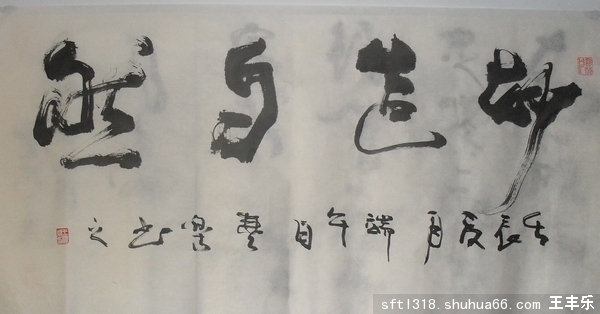 妙造自然
壬辰夏月端午日豐樂书之
sftl318.shuhua66.com 王丰乐